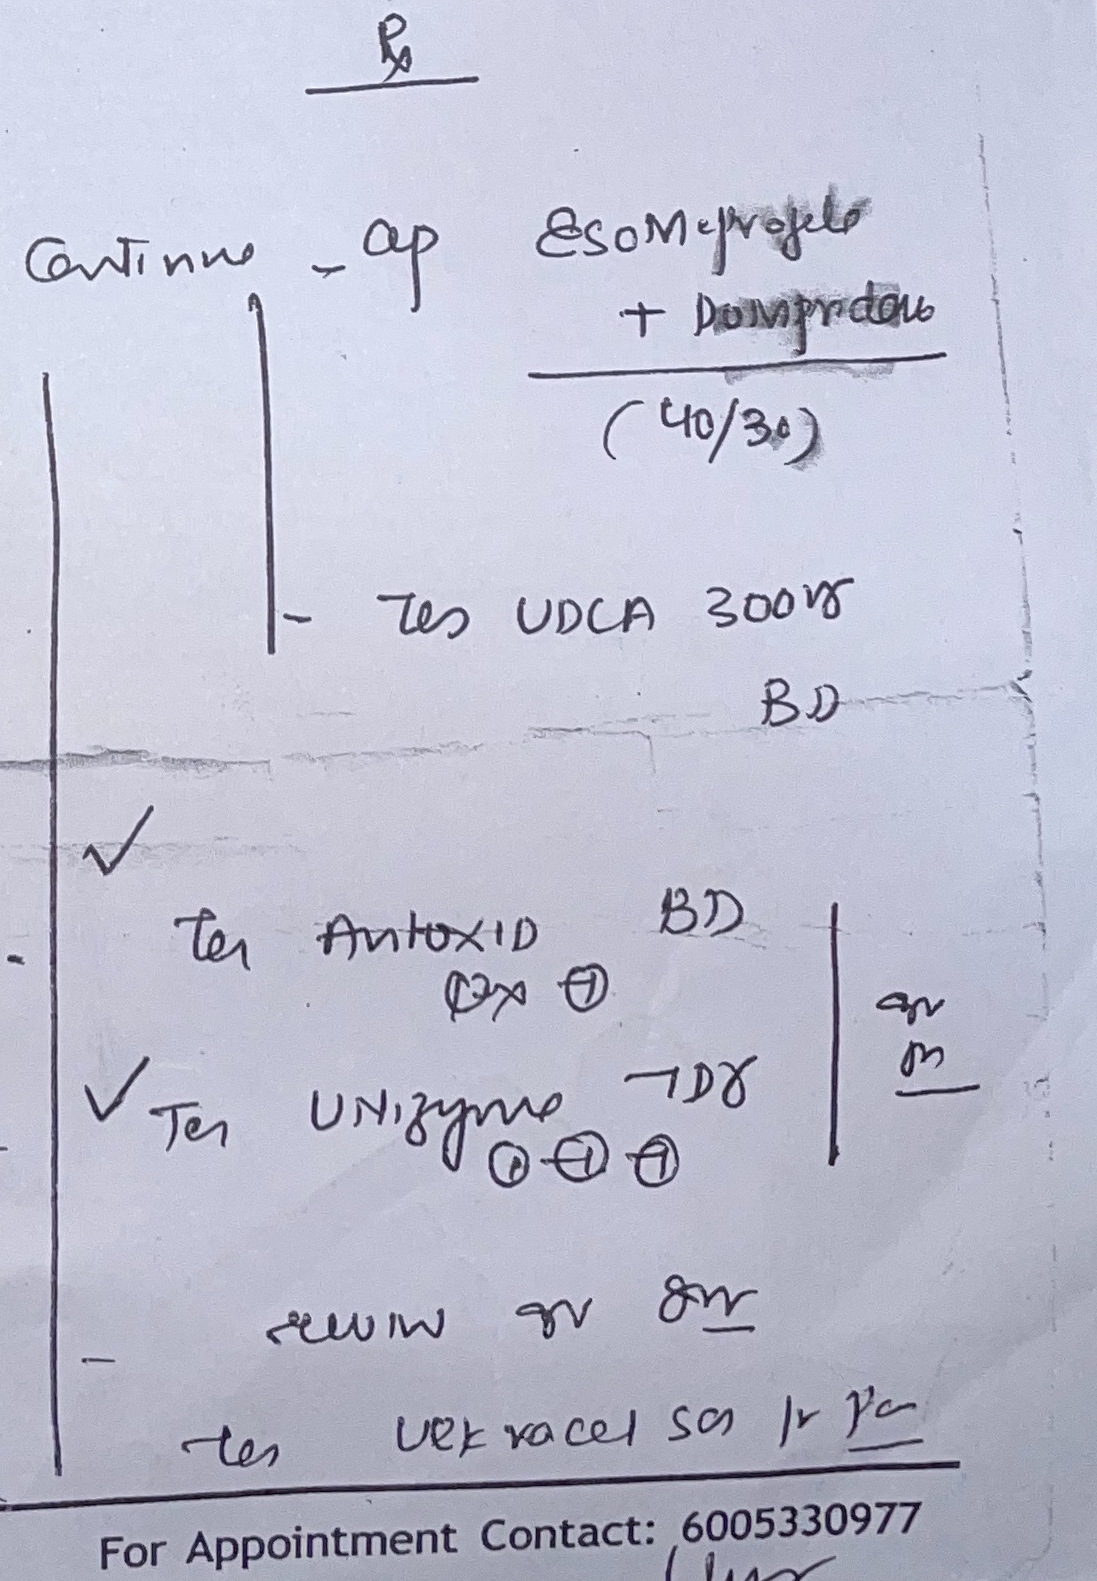 Rx
Continue - Cap Esomeprazole
+ Domperidone
(40/30)
- Tab UDCA 300mg
BD
✓
Tab Antoxid BD
✓ Tab Unizyme TDS
review
-
Tab Ultracet SOS for Pain
For Appointment Contact: 6005330977